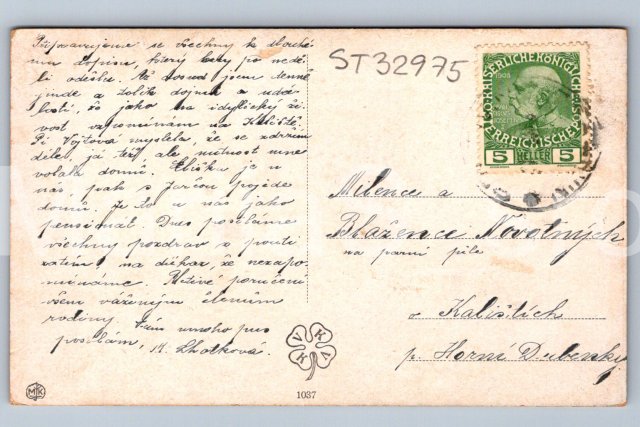 Připravujeme se všechny k dlouhé
mu dopisu, který by po nedě
li odešla. Až dosud jsem
jinde a tolik dojmů a udá
lostí, že jako na idylický ži
vot vzpomínám na Kaliště.
Pí Vojtova myslela, že se zdržím
déle, já též ale nutnost mne
volala domů. Eliška je u
nás, pak s Jarčou pojede
domů. Je to u nás jako
pensionát. Dnes posíláme
všechny pozdrav z pouti
zatím na důkaz, že nezapo
mínáme. Uctivé poručení
všem váženým členům
rodiny. Vám mnoho pus
posílám, M. Lhotková.
ST32975
1908
5 HELLER 5
Milence a
Blažence Novotných
na parní pile
v Kalištích
p. Horní Dubenky
VKVK
MK
1037